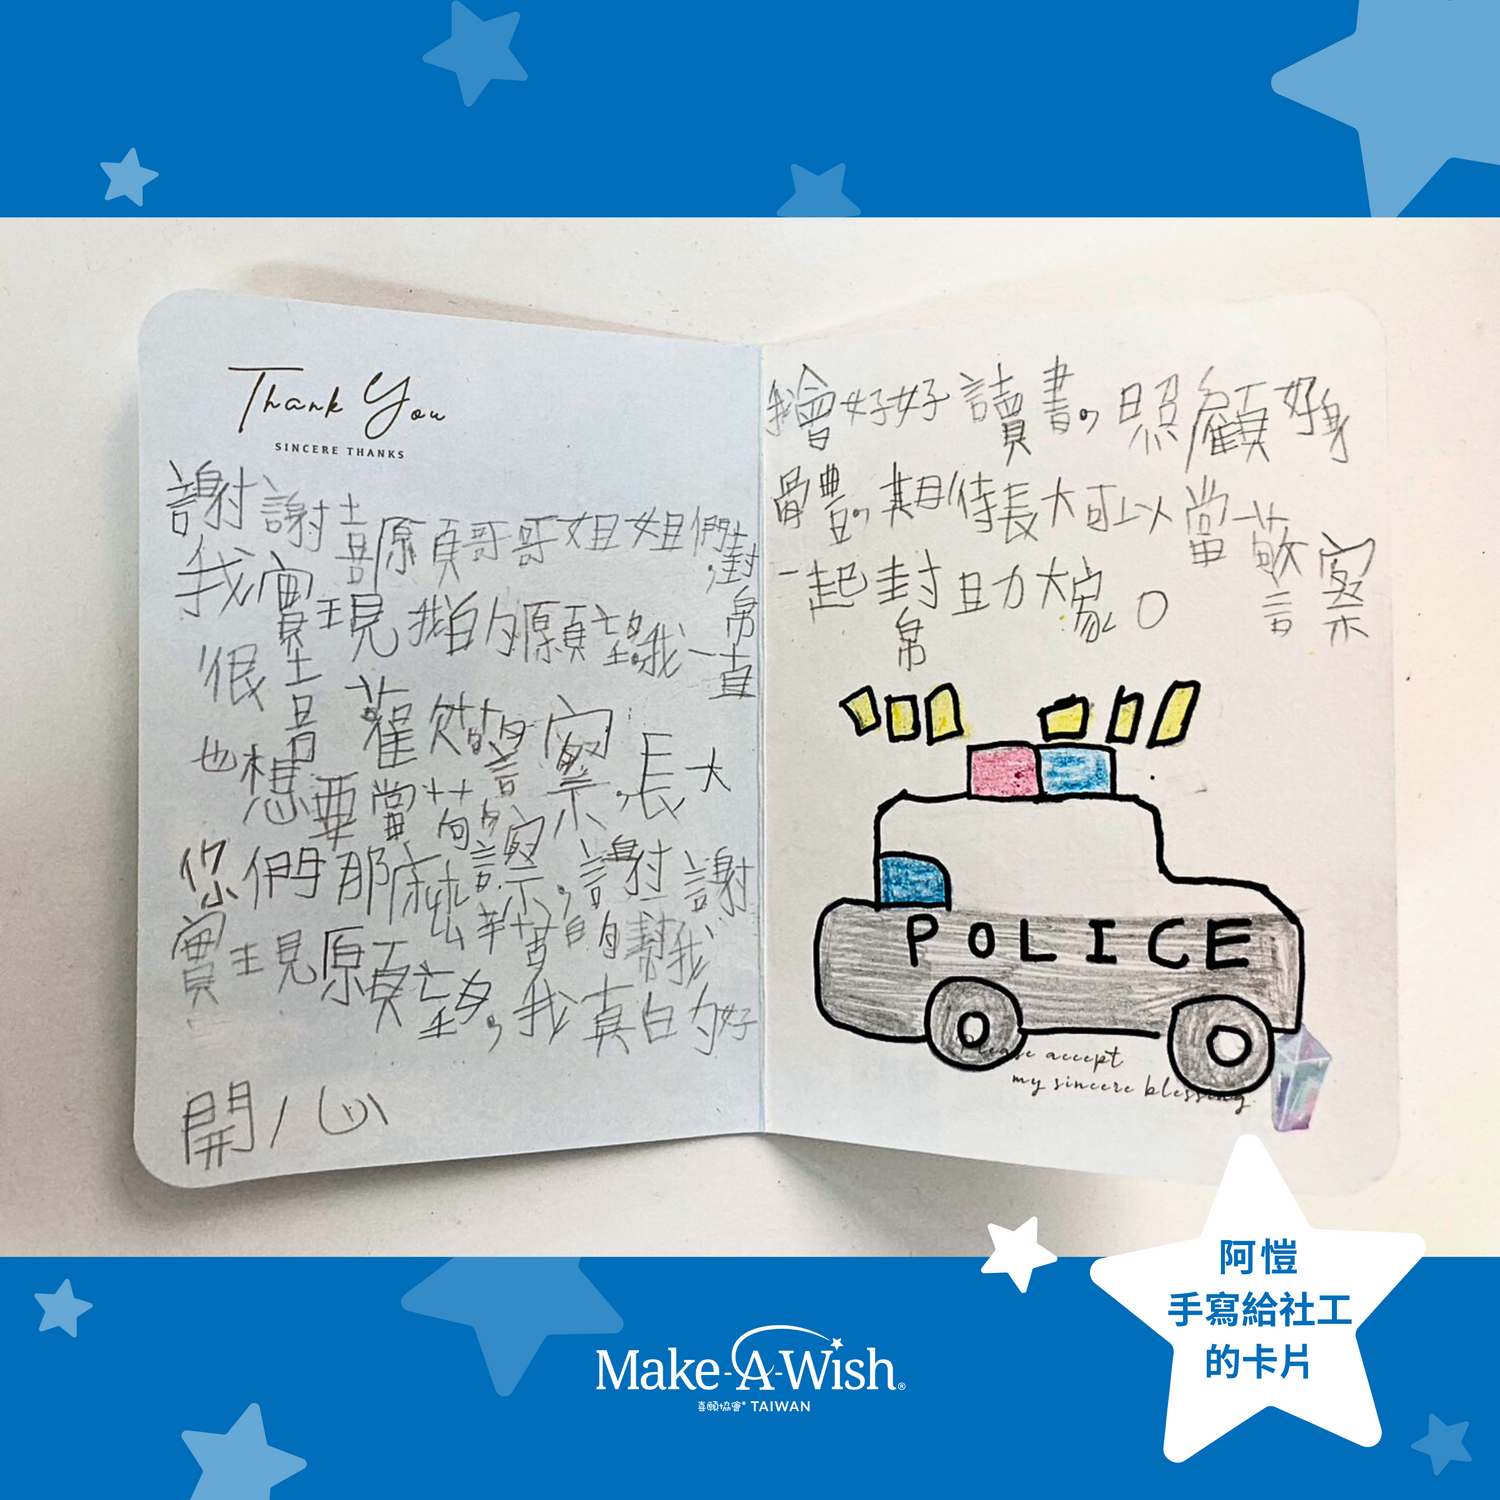 Thank You
SINCERE THANKS
謝謝喜願哥哥姐姐們,幫
我實現我的願望。我一直
很喜歡警察。長大
也想要當警察,謝謝
你們那麼辛苦的幫我
實現願望,我真的好
開心
我會好好讀書,照顧好身
體,期待長大可以當警察
一起幫助大家。
POLICE
Please accept
my sincere blessing
阿愷
手寫給社工
的卡片
Make-A-Wish®
喜願協會® TAIWAN